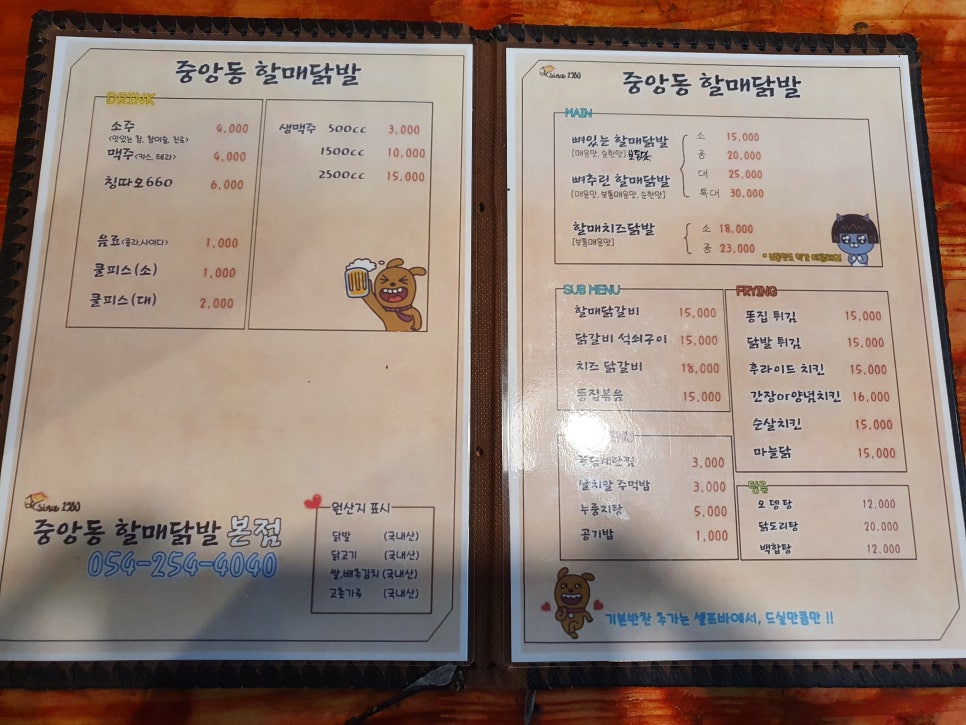 중앙동 할매닭발
DRINK
소주 4,000
(맛있는 참, 참이슬, 진로)
맥주(카스, 테라) 4,000
칭따오660 6,000
음료(콜라,사이다) 1,000
쿨피스(소) 1,000
쿨피스(대) 2,000
생맥주 500cc 3,000
1500cc 10,000
2500cc 15,000
since 1980
중앙동 할매닭발 본점
054-254-4040
원산지 표시
닭발 (국내산)
닭고기 (국내산)
쌀,배추김치 (국내산)
고춧가루 (국내산)
since 1980
중앙동 할매닭발
MAIN
뼈있는 할매닭발
[매운맛, 순한맛]
뼈추린 할매닭발
[매운맛, 보통매운맛, 순한맛]
소 15,000
중 20,000
대 25,000
특대 30,000
할매치즈닭발
[보통매운맛]
소 18,000
중 23,000
SUB MENU
할매닭갈비 15,000
닭갈비 석쇠구이 15,000
치즈 닭갈비 18,000
똥집볶음 15,000
FRYING
똥집 튀김 15,000
닭발 튀김 15,000
후라이드 치킨 15,000
간장or양념치킨 16,000
순살치킨 15,000
마늘닭 15,000
3,000
날치알 주먹밥 3,000
누룽지탕 5,000
공기밥 1,000
탕류
오뎅탕 12,000
닭도리탕 20,000
백합탕 12,000
기본반찬 추가는 셀프바에서, 드실만큼만 !!